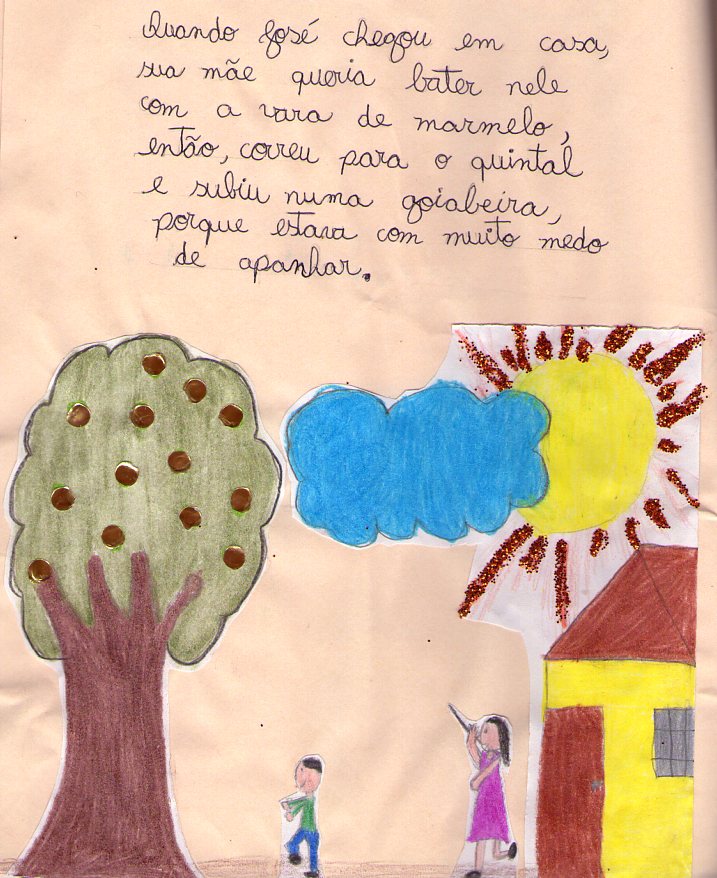 Quando José chegou em casa,
sua mãe queria bater nele
com a vara de marmelo,
então, correu para o quintal
e subiu numa goiabeira,
porque estava com muito medo
de apanhar.